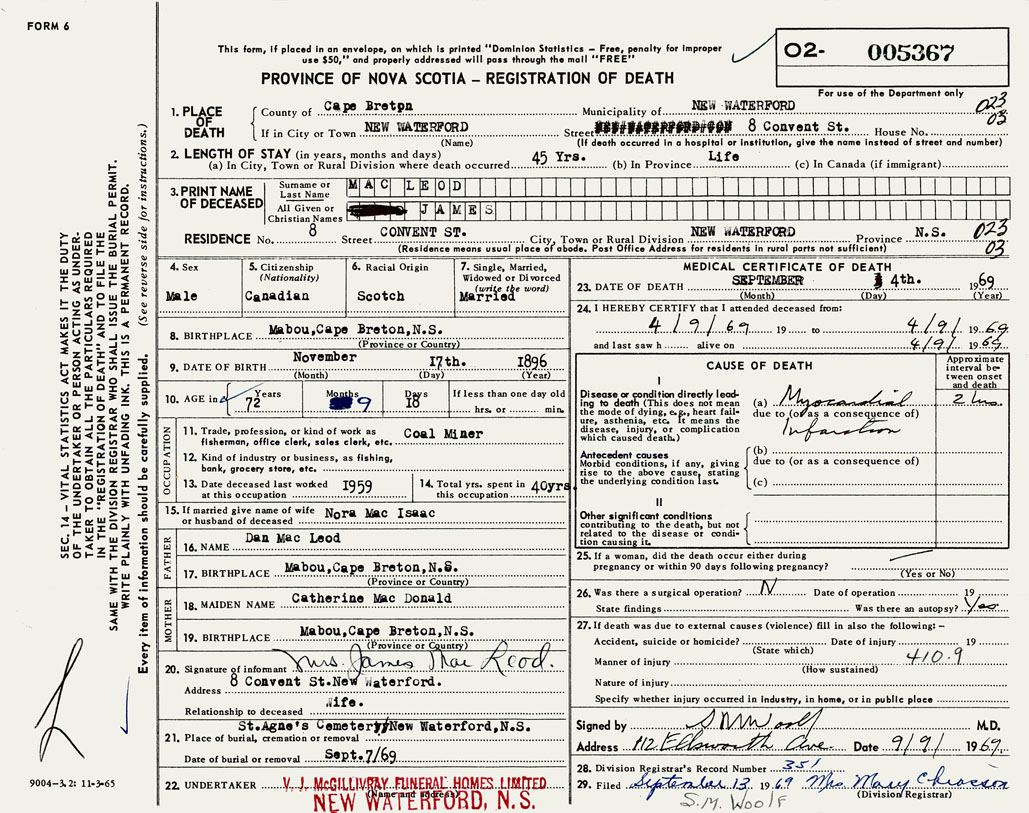 FORM 6
This form, if placed in an envelope, on which is printed "Dominion Statistics – Free, penalty for improper
use $50," and properly addressed will pass through the mail "FREE"
O2- 005367
PROVINCE OF NOVA SCOTIA – REGISTRATION OF DEATH
For use of the Department only
1. PLACE OF DEATH
County of Cape Breton Municipality of NEW WATERFORD 023
If in City or Town NEW WATERFORD Street 8 Convent St. House No. 03
(Name) (If death occurred in a hospital or institution, give the name instead of street and number)
2. LENGTH OF STAY (in years, months and days)
(a) In City, Town or Rural Division where death occurred 45 Yrs. (b) In Province Life (c) In Canada (if immigrant)
3. PRINT NAME OF DECEASED
Surname or Last Name MAC LEOD
All Given or Christian Names JAMES
RESIDENCE No. 8 Street CONVENT ST. City, Town or Rural Division NEW WATERFORD Province N.S. 023
(Residence means usual place of abode. Post Office Address for residents in rural parts not sufficient) 03
4. Sex
Male
5. Citizenship
(Nationality)
Canadian
6. Racial Origin
Scotch
7. Single, Married,
Widowed or Divorced
(write the word)
Married
8. BIRTHPLACE Mabou,Cape Breton,N.S.
(Province or Country)
9. DATE OF BIRTH November 17th. 1896
(Month) (Day) (Year)
10. AGE in Years Months Days If less than one day old
72 9 18 hrs. or min.
OCCUPATION
11. Trade, profession, or kind of work as
fisherman, office clerk, sales clerk, etc. Coal Miner
12. Kind of industry or business, as fishing,
bank, grocery store, etc.
13. Date deceased last worked
at this occupation 1959
14. Total yrs. spent in
this occupation 40yrs.
15. If married give name of wife
or husband of deceased Nora Mac Isaac
FATHER
16. NAME Dan Mac Leod
17. BIRTHPLACE Mabou,Cape Breton,N.S.
(Province or Country)
MOTHER
18. MAIDEN NAME Catherine Mac Donald
19. BIRTHPLACE Mabou,Cape Breton,N.S.
(Province or Country)
20. Signature of informant Mrs. James Mac Leod.
Address 8 Convent St.New Waterford.
Relationship to deceased Wife.
St.Agne's Cemetery/New Waterford,N.S.
21. Place of burial, cremation or removal
Date of burial or removal Sept.7/69
22. UNDERTAKER V. J. McGILLIVRAY FUNERAL HOMES LIMITED
(Name and address)
NEW WATERFORD, N. S.
MEDICAL CERTIFICATE OF DEATH
23. DATE OF DEATH SEPTEMBER 4th. 1969
(Month) (Day) (Year)
24. I HEREBY CERTIFY that I attended deceased from:
4/9/69 19 to 4/9/ 1969
and last saw h alive on 4/9/ 1969
CAUSE OF DEATH
Approximate
interval be-
tween onset
and death
I
Disease or condition directly lead-
ing to death (This does not mean
the mode of dying, e.g., heart fail-
ure, asthenia, etc. It means the
disease, injury, or complication
which caused death.)
(a) Myocardial 2 hrs
due to (or as a consequence of)
Infarction
Antecedent causes
Morbid conditions, if any, giving
rise to the above cause, stating
the underlying condition last.
(b)
due to (or as a consequence of)
(c)
II
Other significant conditions
contributing to the death, but not
related to the disease or condi-
tion causing it.
25. If a woman, did the death occur either during
pregnancy or within 90 days following pregnancy?
(Yes or No)
26. Was there a surgical operation? N Date of operation 19
State findings Was there an autopsy? Yes
27. If death was due to external causes (violence) fill in also the following: –
Accident, suicide or homicide? Date of injury 19
(State which)
Manner of injury 410.9
(How sustained)
Nature of injury
Specify whether injury occurred in industry, in home, or in public place
Signed by S M Woolf M.D.
Address 112 Ellsworth Ave. Date 9/9/ 1969.
28. Division Registrar's Record Number 351
29. Filed September 13 1969 Mrs Mary Chiasson
(Division Registrar)
S.M. WOOLF
SEC. 14 – VITAL STATISTICS ACT MAKES IT THE DUTY
OF THE UNDERTAKER OR PERSON ACTING AS UNDER-
TAKER TO OBTAIN ALL THE PARTICULARS REQUIRED
IN THE "REGISTRATION OF DEATH" AND TO FILE THE
SAME WITH THE DIVISION REGISTRAR WHO SHALL ISSUE THE BURIAL PERMIT.
WRITE PLAINLY WITH UNFADING INK. THIS IS A PERMANENT RECORD.
Every item of information should be carefully supplied. (See reverse side for instructions.)
9004–3.2: 11-3-65